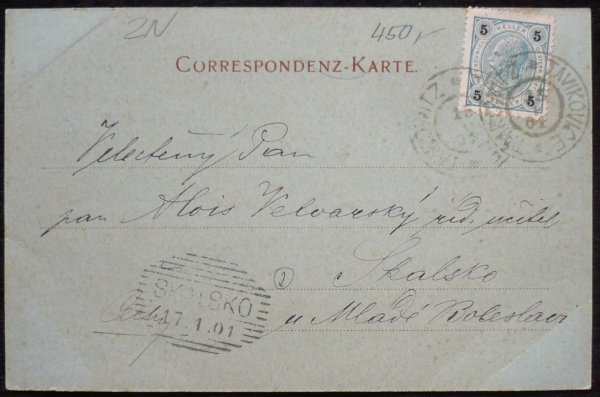 2N
450,-
CORRESPONDENZ-KARTE.
5 HELLER 5
5 5
TAVIKOVICE
01
Velectěný Pan
pan Alois Velvarský říd. učitel
2
Skalsko
Čechy
u Mladé Boleslavi
SKALSKO
17.1.01